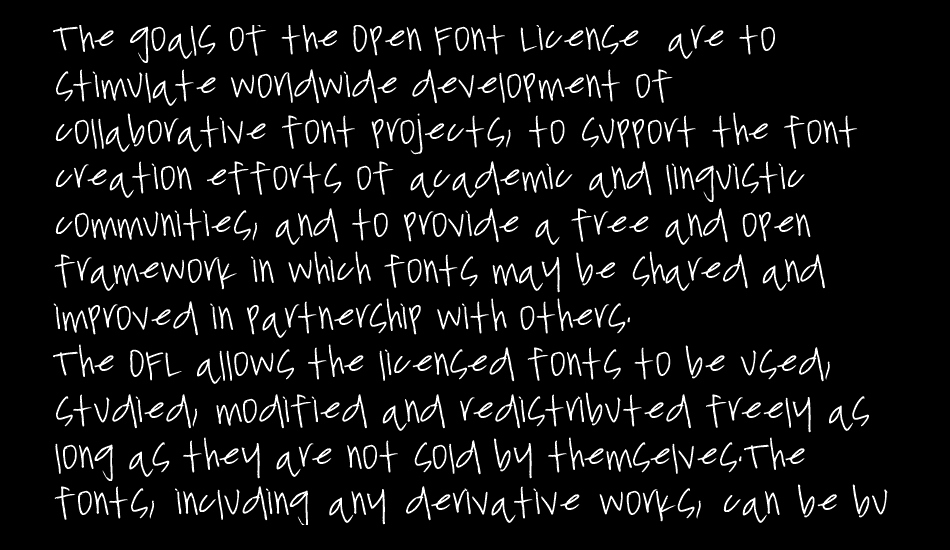 The goals of the Open Font License are to
stimulate worldwide development of
collaborative font projects, to support the font
creation efforts of academic and linguistic
communities, and to provide a free and open
framework in which fonts may be shared and
improved in partnership with others.
The OFL allows the licensed fonts to be used,
studied, modified and redistributed freely as
long as they are not sold by themselves.The
fonts, including any derivative works, can be bu